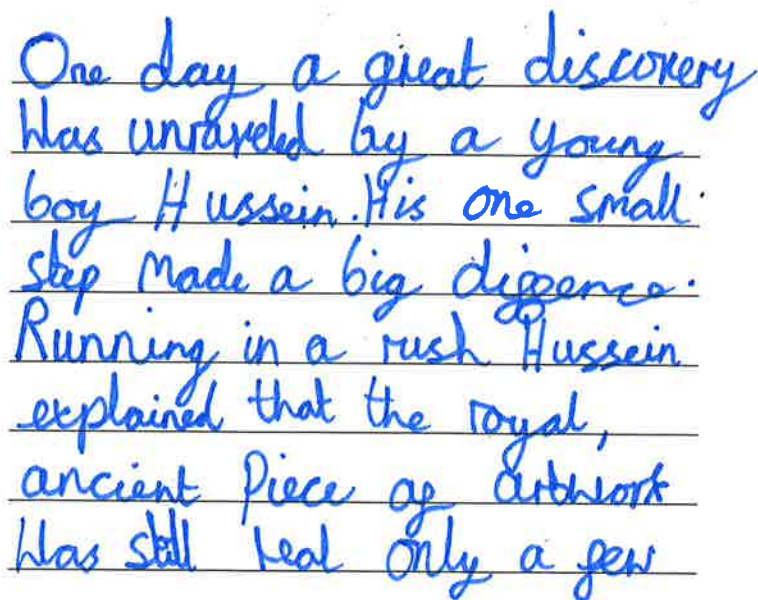 One day a great discovery
Was unraveled by a young
boy Hussein. His one small
step Made a big diffence.
Running in a rush Hussein
explained that the royal,
ancient Piece of artwork
Was still real only a few